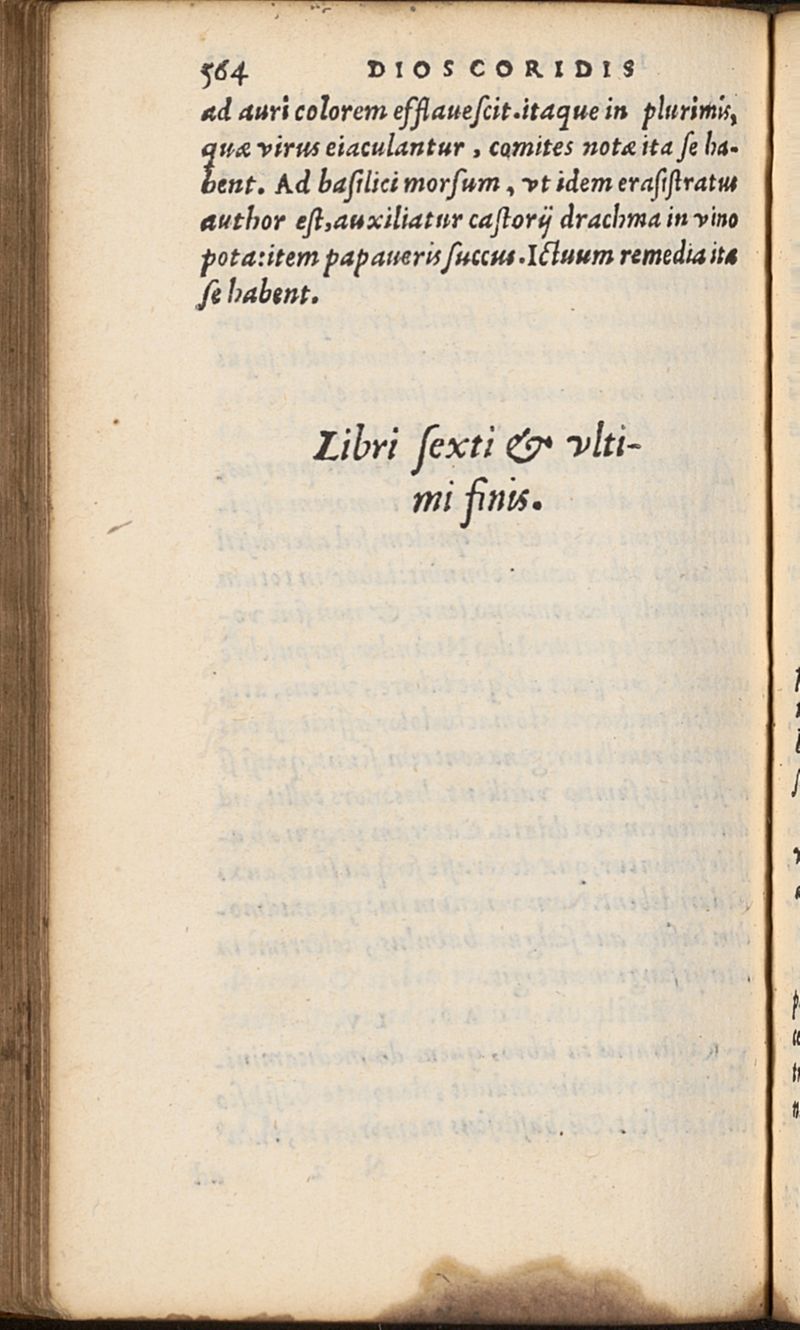 564 DIOSCORIDIS
ad auri colorem efflaueſcit.itaque in plurimis,
quæ virus eiaculantur, comites notæ ita ſe ha-
bent. Ad baſilici morſum, vt idem eraſiſtratus
author eſt,auxiliatur caſtorij drachma in vino
pota:item papaueris ſuccus.Ictuum remedia ita
ſe habent.
Libri ſexti & vlti-
mi finis.